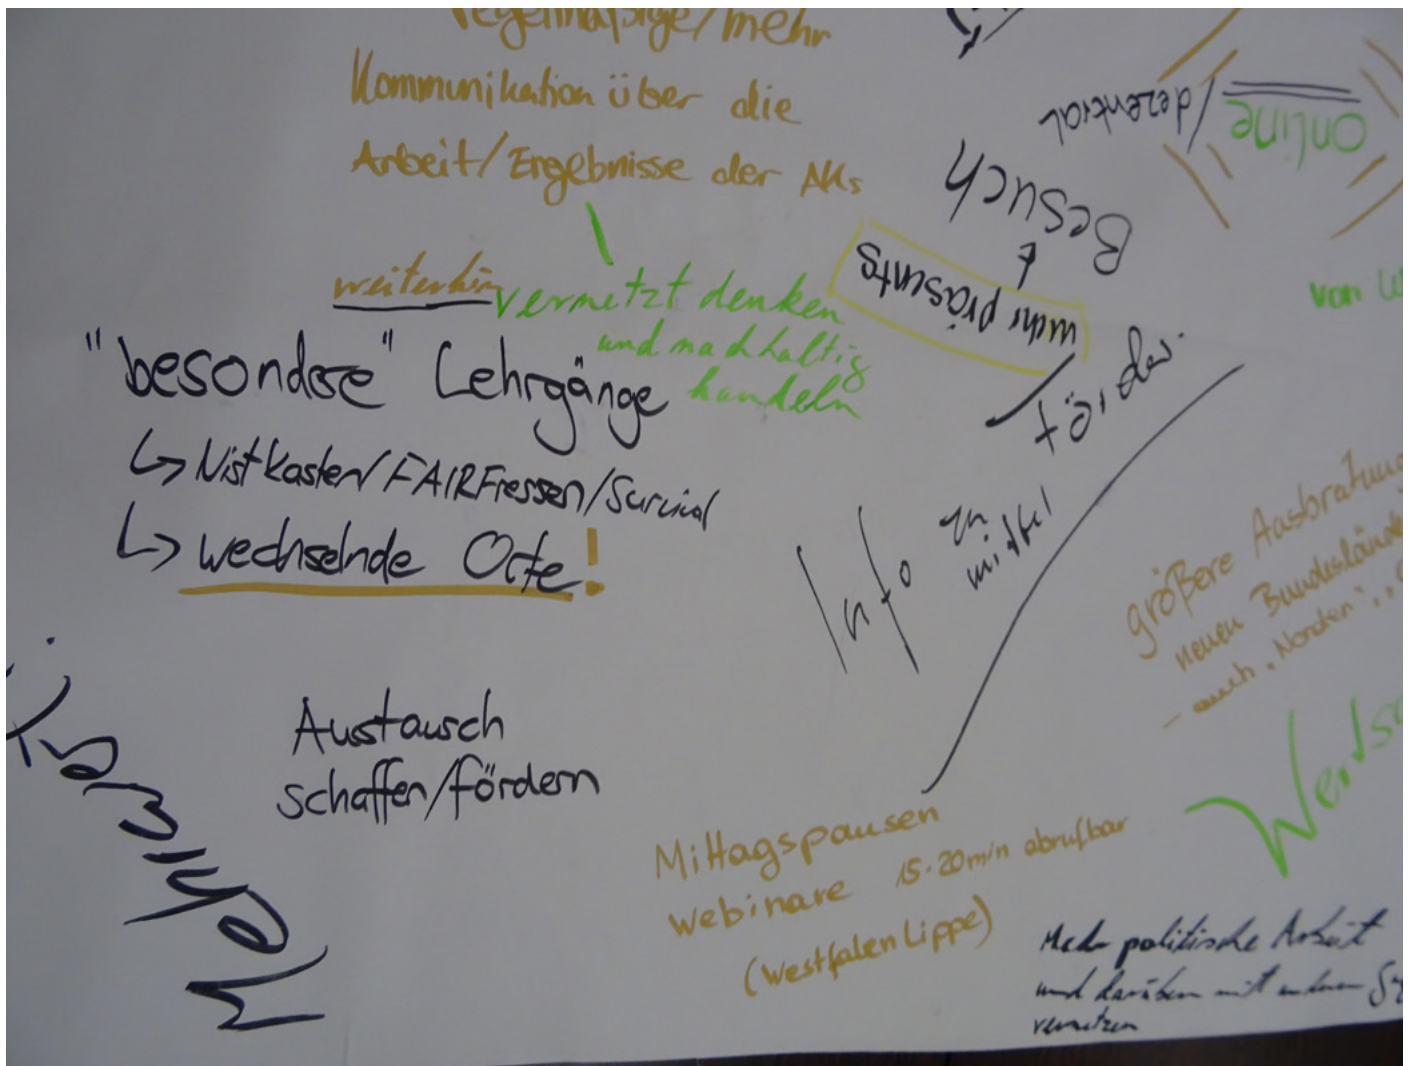 regelmäßige/mehr
Kommunikation über die
Arbeit/Ergebnisse der AKs
weiterhin vernetzt denken
und nachhaltig
handeln
"besondere" Lehrgänge
↳ Nistkasten/FAIRFressen/Survival
↳ wechselnde Orte!
Austausch
schaffen/fördern
online
/dezentral
Besuch
mehr präsents
von
Info zu
förder.
mittel
größere Ausbreitung
neuen Bundesländer
- auch "Norden"
Mittagspausen
webinare 15-20min abrufbar
(Westfalen Lippe)
Mehr politische Arbeit
und darüber mit anderen
vernetzen